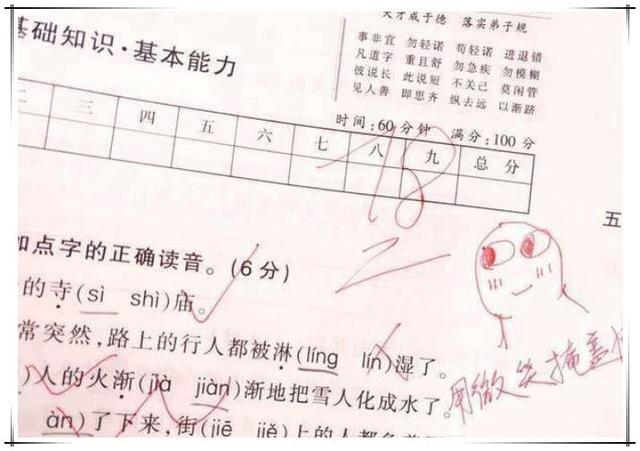 天才成于德 落实弟子规
事非宜 勿轻诺 苟轻诺 进退错
凡道字 重且舒 勿急疾 勿模糊
彼说长 此说短 不关己 莫闲管
见人善 即思齐 纵去远 以渐跻
基础知识·基本能力
时间:60分钟 满分:100分
二 三 四 五 六 七 八 九 总分
78
五
加点字的正确读音。(6分)
的寺(sì shì)庙。
常突然,路上的行人都被淋(líng lín)湿了。
)人的火渐(jià jiàn)渐地把雪人化成水了。
用微笑掩盖
àn)了下来,街(jiē jiě)上的人都